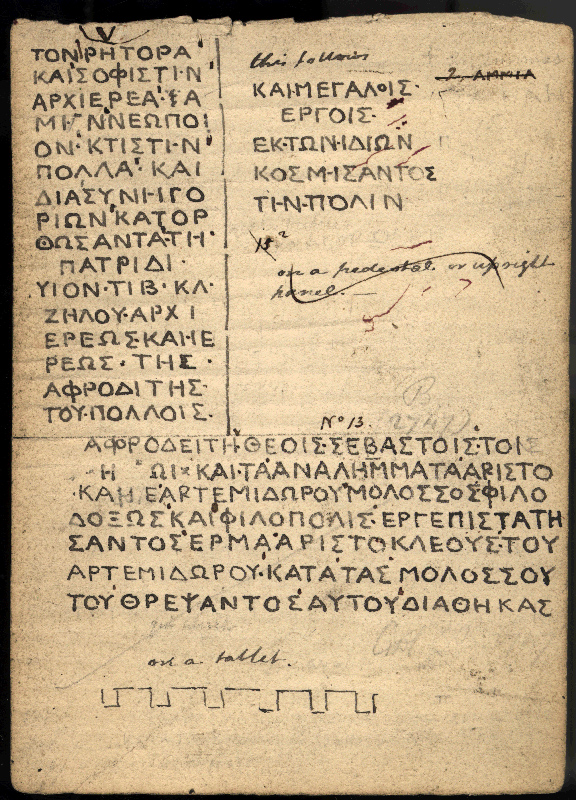 ΤΟΝΡΗΤΟΡΑ
ΚΑΙΣΟΦΙΣΤΙΝ
ΑΡΧΙΕΡΕΑ·ΤΑ
ΜΙΑΝΝΕΩΠΟΙ
ΟΝ·ΚΤΙΣΤΙΝ
ΠΟΛΛΑ·ΚΑΙ
ΔΙΑΣΥΝΗΓΟ
ΡΙΩΝΚΑΤΟΡ
ΘΩΣΑΝΤΑ·ΤΗ·
ΠΑΤΡΙΔΙ·
ΥΙΟΝ·ΤΙΒ·ΚΛ·
ΖΗΛΟΥ·ΑΡΧΙ
ΕΡΕΩΣΚΑΙΙΕ
ΡΕΩΣ·ΤΗΣ·
ΑΦΡΟΔΙΤΗΣ·
ΤΟΥ·ΠΟΛΛΟΙΣ·
this follows
2 ΑΜΜΙΑ
ΚΑΙΜΕΓΑΛΟΙΣ·
ΕΡΓΟΙΣ·
ΕΚ·ΤΩΝ·ΙΔΙΩΝ
ΚΟΣΜΙΣΑΝΤΟΣ
ΤΙΝ·ΠΟΛΙΝ
on a pedestal or upright
panel.
No 13.
2747
ΑΦΡΟΔΕΙΤΗ·ΘΕΟΙΣ·ΣΕΒΑΣΤΟΙΣ·ΤΟΙΣ
Η ΩΙ·ΚΑΙΤΑΑΝΑΛΗΜΜΑΤΑ·ΑΡΙΣΤΟ
ΚΛΗΕΑΡΤΕΜΙΔΩΡΟΥΜΟΛΟΣΣΟΣΦΙΛΟ
ΔΟΞΩΣΚΑΙΦΙΛΟΠΟΛΙΣ·ΕΡΓΕΠΙΣΤΑΤΗ
ΣΑΝΤΟΣΕΡΜΑ·ΑΡΙΣΤΟΚΛΕΟΥΣ·ΤΟΥ
ΑΡΤΕΜΙΔΩΡΟΥ·ΚΑΤΑΤΑΣ ΜΟΛΟΣΣΟΥ
ΤΟΥΘΡΕΨΑΝΤΟΣΑΥΤΟΥΔΙΑΘΗΚΑΣ
on a tablet.